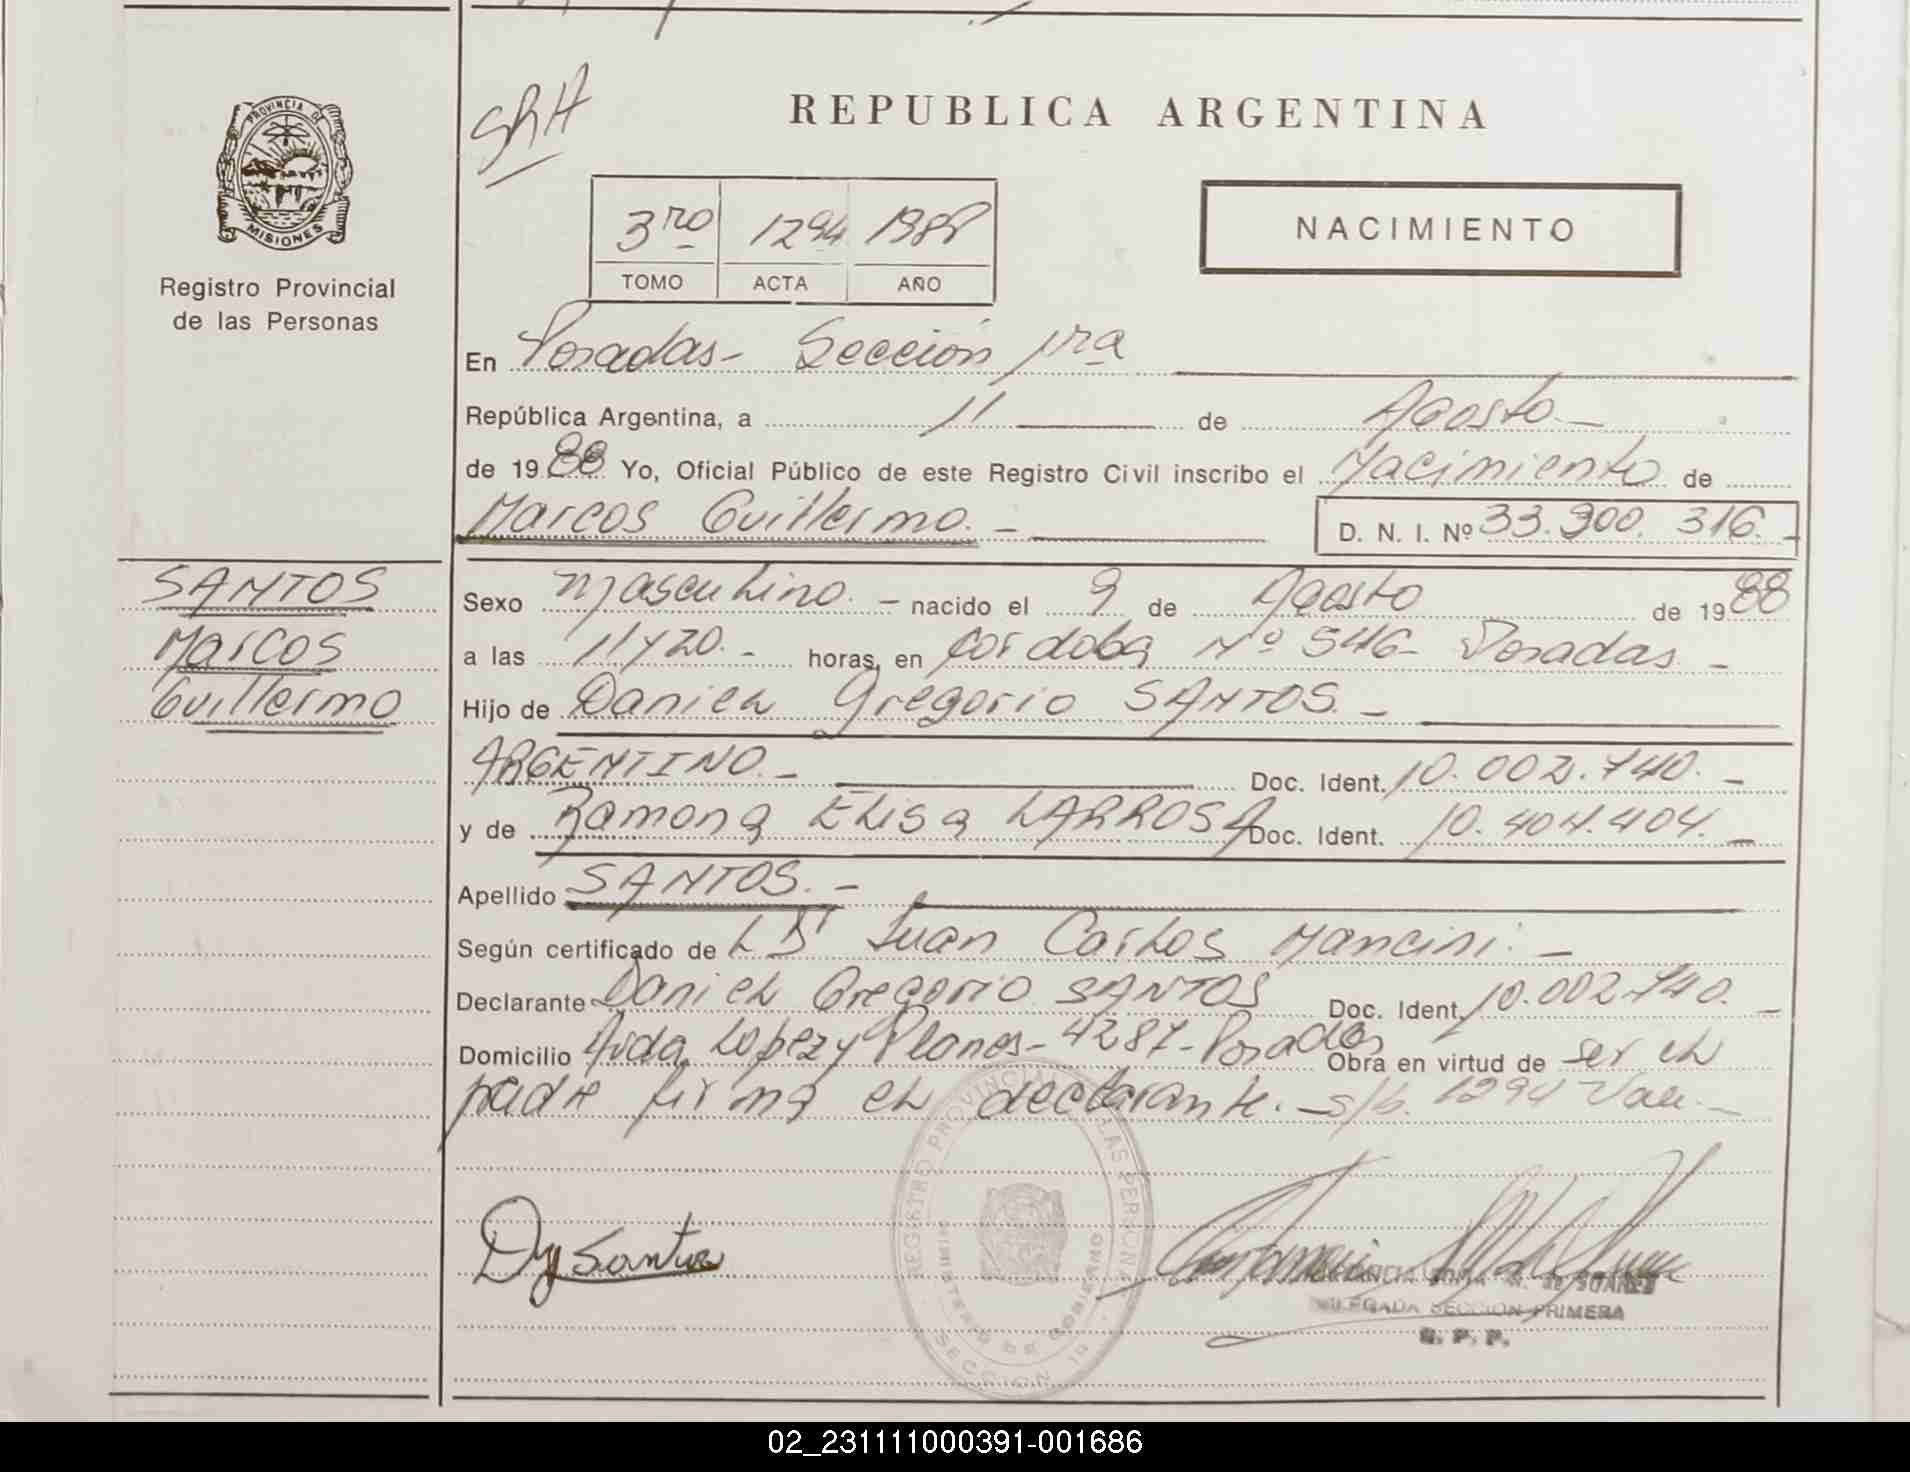 PROVINCIA DE
MISIONES
Registro Provincial
de las Personas
REPUBLICA ARGENTINA
NACIMIENTO
3ro 1294 1988
TOMO ACTA AÑO
En Posadas- Sección 1ra
República Argentina, a 11 de Agosto-
de 1988 Yo, Oficial Público de este Registro Civil inscribo el Nacimiento de
Marcos Guillermo.- D. N. I. Nº 33.900.316.-
SANTOS
Marcos
Guillermo
Sexo masculino.- nacido el 9 de Agosto de 1988
a las 11 y 20.- horas, en Cordoba Nº 546- Posadas-
Hijo de Daniel Gregorio SANTOS.-
ARGENTINO.- Doc. Ident. 10.002.740.-
y de Ramona Elisa LARROSA Doc. Ident. 10.404.404.-
Apellido SANTOS.-
Según certificado de Dr Juan Carlos Mancini.-
Declarante Daniel Gregorio SANTOS Doc. Ident. 10.002.740.-
Domicilio Avda. Lopez y Planes- 4287- Posadas Obra en virtud de ser el
padre firma el declarante. s/b. 1294 Vale.-
REGISTRO PROVINCIAL DE LAS PERSONAS
MINISTERIO DE GOBIERNO
SECCION 1a
DELEGADA SECCION PRIMERA
R. P. P.
02_231111000391-001686